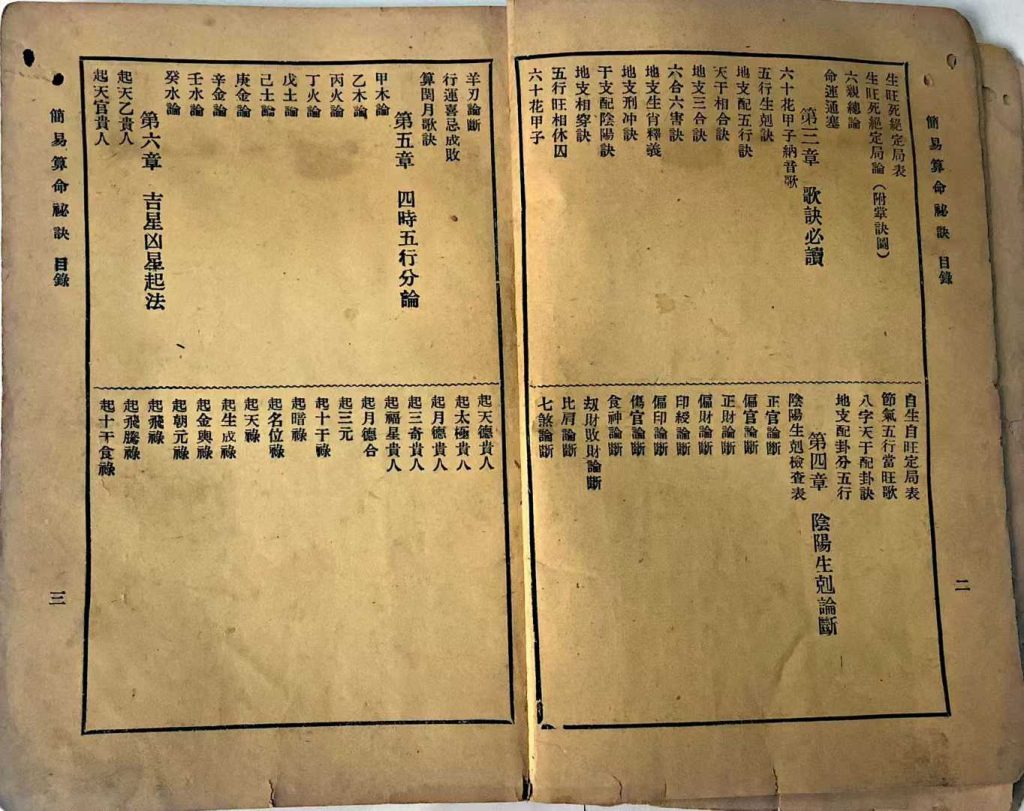 簡易算命祕訣 目錄
二
生旺死絕定局表
生旺死絕定局論(附掌訣圖)
六親總論
命運通塞
第三章 歌訣必讀
六十花甲子納音歌
五行生剋訣
地支配五行訣
天干相合訣
地支三合訣
六合六害訣
地支生肖釋義
地支刑冲訣
干支配陰陽訣
地支相穿訣
五行旺相休囚
六十花甲子
自生自旺定局表
節氣五行當旺歌
八字天干配卦訣
地支配卦分五行
第四章 陰陽生剋論斷
陰陽生剋檢查表
正官論斷
偏官論斷
正財論斷
偏財論斷
印綬論斷
偏印論斷
傷官論斷
食神論斷
刼財敗財論斷
比肩論斷
七煞論斷
簡易算命祕訣 目錄
三
羊刃論斷
行運喜忌成敗
算閏月歌訣
第五章 四時五行分論
甲木論
乙木論
丙火論
丁火論
戊土論
己土論
庚金論
辛金論
壬水論
癸水論
第六章 吉星凶星起法
起天乙貴人
起天官貴人
起天德貴人
起太極貴人
起月德貴人
起三奇貴人
起福星貴人
起月德合
起三元
起十干祿
起暗祿
起名位祿
起天祿
起生成祿
起金輿祿
起朝元祿
起飛祿
起飛騰祿
起十干食祿